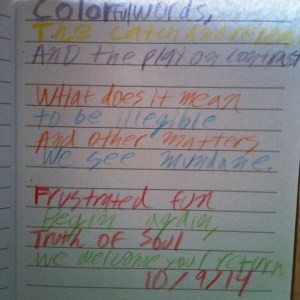 Colorfulwords,
The catch and
AND the play on contrast
What does it mean
to be illegible
And other matters
We see mundane.
Frustrated fun
Begin again,
Truth of Soul
We welcome your return
10/9/14